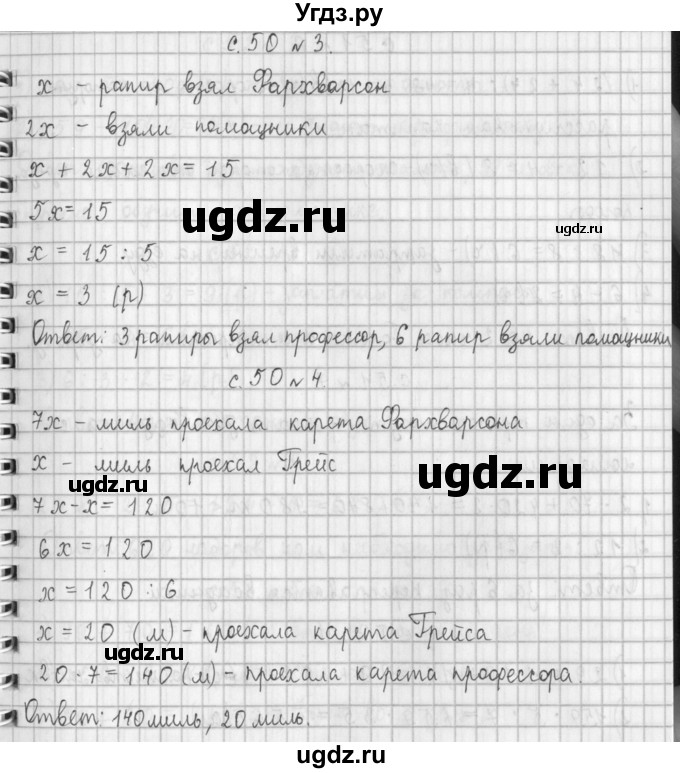 Угдз.ру
с. 50 № 3.
х - рапир взял Фархварсон
2х - взяли помощники
х + 2х + 2х = 15
5х = 15
ugdz.ru
ugdz.ru
х = 15 : 5
х = 3 (р)
Ответ: 3 рапиры взял профессор, 6 рапир взяли помощники
с. 50 № 4.
7х - миль проехала карета Фархварсона
х - миль проехал Грейс
ugdz.ru
ugdz.ru
7х - х = 120
6х = 120
х = 120 : 6
х = 20 (м) - проехала карета Грейса
ugdz.ru
20 · 7 = 140 (м) - проехала карета профессора.
Ответ: 140 миль, 20 миль.
ugdz.ru